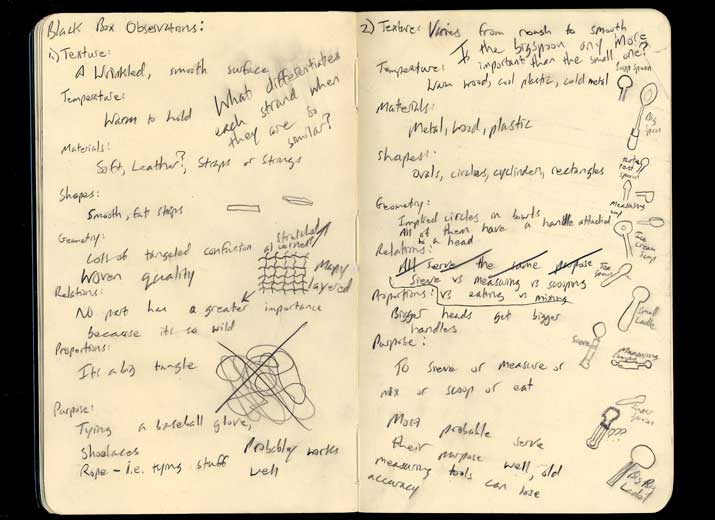 Black Box Observations:
1.) Texture:
A Wrinkled, smooth surface
What differentiates
each strand when
they are so
similar?
Temperature:
Warm to hold
Materials:
Soft, Leather?, Straps or Strings
Shapes:
Smooth, flat strips
Geometry:
Lots of tangeled confusion
Woven quality
Stretched
at corners
Many
layered
Relations:
No part has a greater importance
because its so wild
Proportions:
Its a big tangle
Purpose:
Tying a baseball glove,
Shoelaces
Rope - i.e. tying stuff
Probably works
well
2) Texture: Varies from rough to smooth
Is the big spoon any more
important than the small one?
Temperature:
Warm wood, cool plastic, cold metal
Materials:
Metal, wood, plastic
Shapes:
Ovals, circles, cylinders, rectangles
Geometry:
Implied circles in bowls
All of them have a handle attached
to a head
Relations:
All serve the same purpose
Sieve vs measuring vs scooping
vs eating vs mixing
Proportions:
Bigger heads get bigger
handles
Purpose:
To sieve or measure or
mix or scoop or eat
Most probable serve
their purpose well, old
measuring tools can lose
accuracy
Soup spoon
Big
Spoon
taste
test
spoon
Measuring
cup
Ice
cream
scoop
Small
Ladle
Sieve
Measuring
???
Big